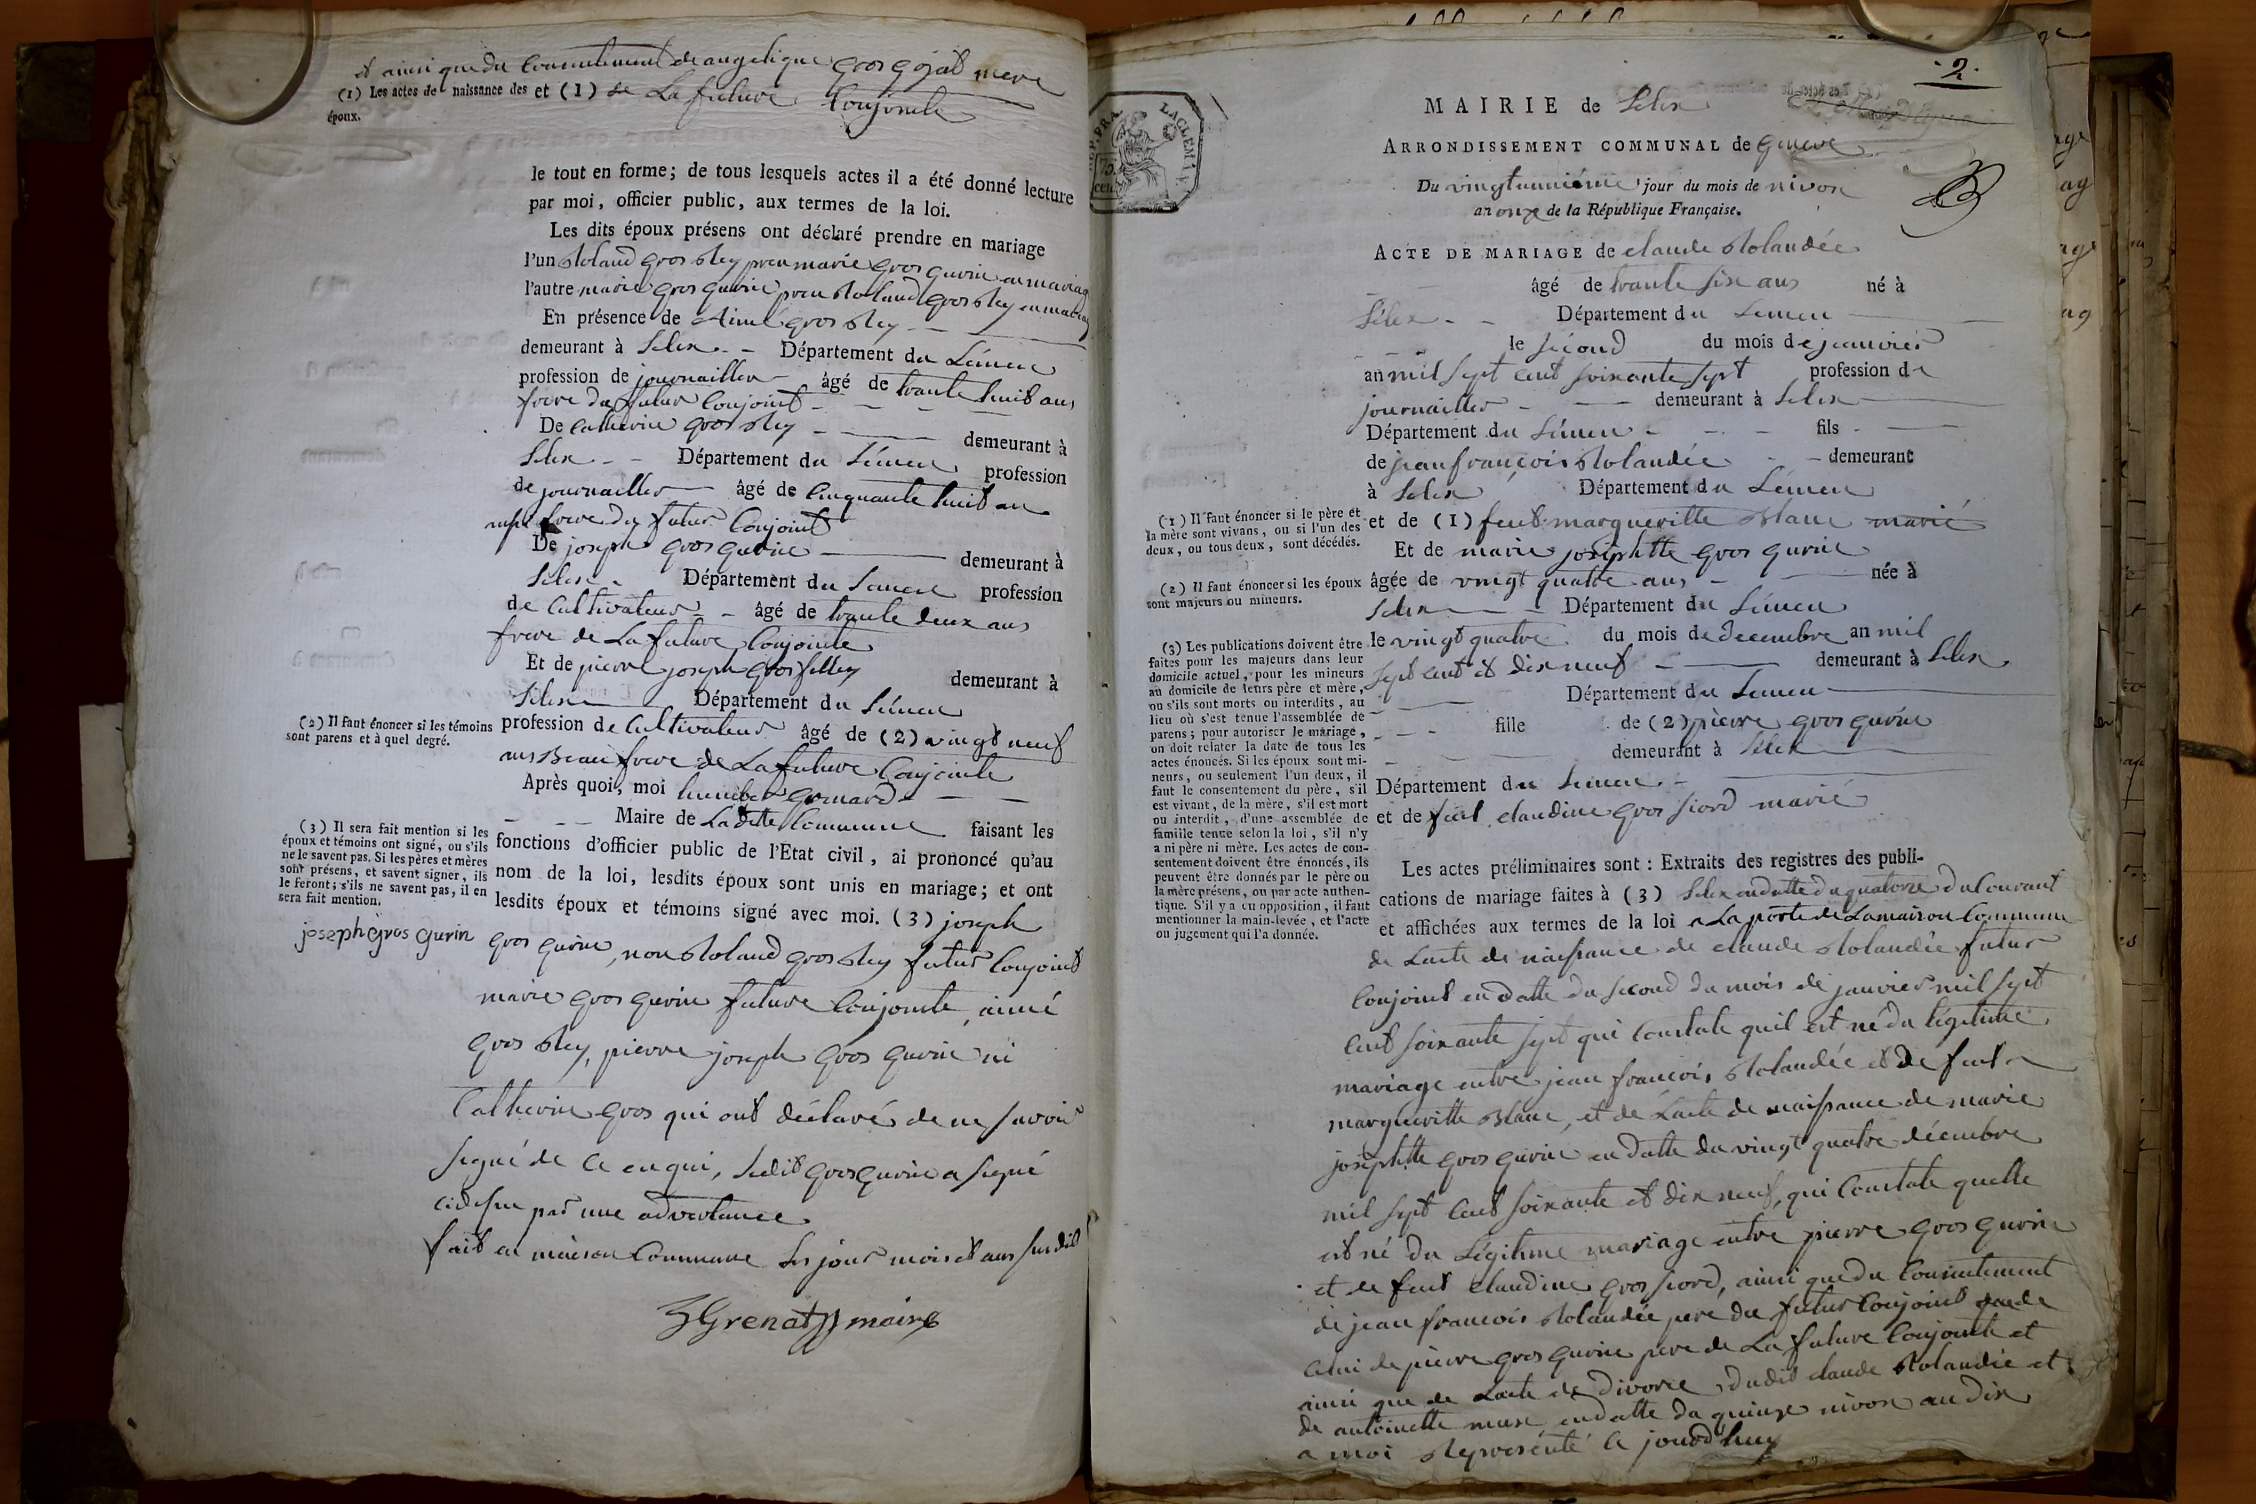 et ainsi que du Consentement de angelique gros gojat mere
(1) Les actes de naissance des époux.
et (1) de La future Conjointe
le tout en forme; de tous lesquels actes il a été donné lecture
par moi, officier public, aux termes de la loi.
Les dits époux présens ont déclaré prendre en mariage
l'un Roland gros Rey pren marie gros gurin en mariage
l'autre marie gros gurin pren Roland gros Rey en mariage
En présence de Aimé gros Rey
demeurant à Selex Département du Léman
profession de journaillier âgé de trante huit ans
frere du futur Conjoint
De Catherin gros Rey demeurant à
Selex Département du Léman profession
de journaillier âgé de Cinquante huit an
frere du futur Conjoint
De joseph gros gurin demeurant à
Selex Département du Leman profession
de Cultivateur âgé de trante deux ans
frere de La future Conjointe
Et de pierre joseph gros filley demeurant à
Selex Département du Léman
(2) Il faut énoncer si les témoins
sont parens et à quel degré.
profession de Cultivateur âgé de (2) vingt neuf
ans Beau frere de La future Conjointe
Après quoi, moi humber grenard
Maire de Ladite Commune faisant les
(3) Il sera fait mention si les
époux et témoins ont signé, ou s'ils
ne le savent pas. Si les pères et mères
sont présens, et savent signer, ils
le feront; s'ils ne savent pas, il en
sera fait mention.
fonctions d'officier public de l'Etat civil, ai prononcé qu'au
nom de la loi, lesdits époux sont unis en mariage; et ont
lesdits époux et témoins signé avec moi. (3) joseph
joseph gros gurin
gros gurin, non Roland gros Rey futur Conjoint
marie gros gurin future Conjointe, aimé
gros Rey, pierre joseph gros gurin ni
Catherin gros qui ont déclarés de ne savoir
signé de Ce enqui, Ledit gros gurin a signé
cidesu par une advertance
fait en maison Commune Les jour mois et ans susdit
Grenat maire
2
MAIRIE de Selex
ARRONDISSEMENT COMMUNAL de Geneve
Du vingtunniéme jour du mois de nivose
an onze de la République Française.
ACTE DE MARIAGE de claude Rolandée
âgé de trante six ans né à
Sélex Département du Leman
le second du mois de jeanvier
an mil sept cent soixante sept profession de
journaillier demeurant à Selex
Département du Léman fils
de jean françois Rolandée demeurant
à Selex Département du Léman
(1) Il faut énoncer si le père et
la mère sont vivans, ou si l'un des
deux, ou tous deux, sont décédés.
et de (1) feut margueritte Blanc marié
Et de marie josephtte gros gurin
(2) Il faut énoncer si les époux
sont majeurs ou mineurs.
âgée de vingt quatre ans née à
Selex Département du Léman
le vingt quatre du mois de decembre an mil
sept cent et dix neuf demeurant à Selex
Département du Leman
fille de (2) pierre gros gurin
demeurant à Selex
Département du Leman
et de feut claudine gros siord marié
(3) Les publications doivent être
faites pour les majeurs dans leur
domicile actuel, pour les mineurs
au domicile de leurs père et mère,
ou s'ils sont morts ou interdits, au
lieu où s'est tenue l'assemblée de
parens; pour autoriser le mariage,
on doit relater la date de tous les
actes énoncés. Si les époux sont mi-
neurs, ou seulement l'un deux, il
faut le consentement du père, s'il
est vivant, de la mère, s'il est mort
ou interdit, d'une assemblée de
famille tenue selon la loi, s'il n'y
a ni père ni mère. Les actes de con-
sentement doivent être énoncés, ils
peuvent être donnés par le père ou
la mère présens, ou par acte authen-
tique. S'il y a eu opposition, il faut
mentionner la main-levée, et l'acte
ou jugement qui l'a donnée.
Les actes préliminaires sont : Extraits des registres des publi-
cations de mariage faites à (3) Selex en datte du quatorze du Courant
et affichées aux termes de la loi a La porte de Lamaison Commune
de Lacte de naissance de claude Rolandée futur
Conjoint en datte du second du mois de janvier mil sept
cent soixante sept qui Constate quil est né du légitime
mariage entre jean francois Rolandée et de feut
margueritte Blanc, et de Lacte de naissance de marie
josephtte gros gurin en datte du vingt quatre décembre
mil sept cent soixante et dix neuf, qui Constate quelle
est né du Légitime mariage entre pierre gros gurin
et de feut claudine gros siord, ainsi que du Consentement
de jean francois Rolandée pere du futur Conjoint
celui de pierre gros gurin pere de La future Conjointe et
ainsi que de Lacte de divorce dudit claude Rolandée et
de antoinette mux en datte du quinze nivose an dix
a moi Représenté Ce jourd'huy